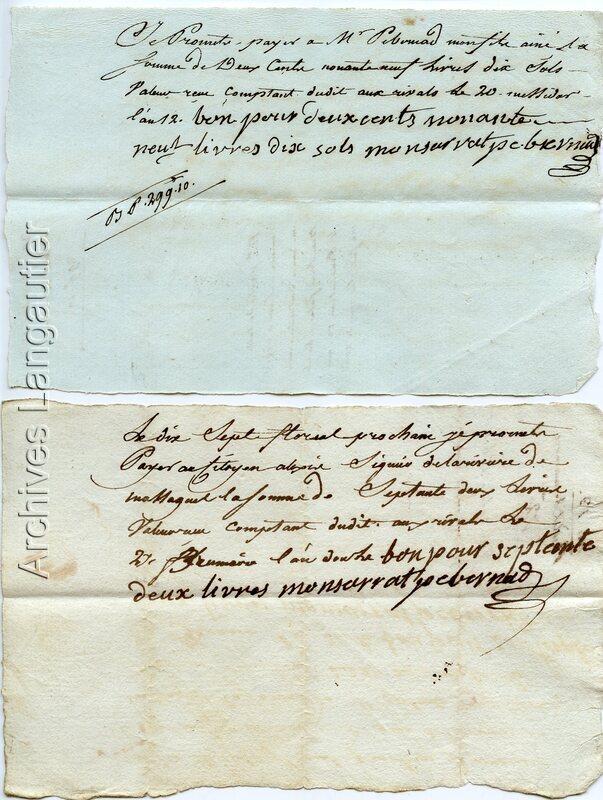 Je Promets payer a Mr Pebernad mon frere ainé la
somme de Deux Cents nonante neuf Livres dix Sols
Valeur reçue comptant dudit aux rivals Le 20 messidor
l'an 12. bon pour deux cents nonante
neuf livres dix sols monsarrat pebernad
B P. 299.10.
Le dix Sept floreal prochain je promets
Payer au Citoyen Signier de la riviere de
massaguel la somme de Septante deux Livres
Valeur reçue comptant dudit aux rivals Le
2e brumaire l'an douke bon pour septante
deux livres monsarrat pebernad
Archives Langautier